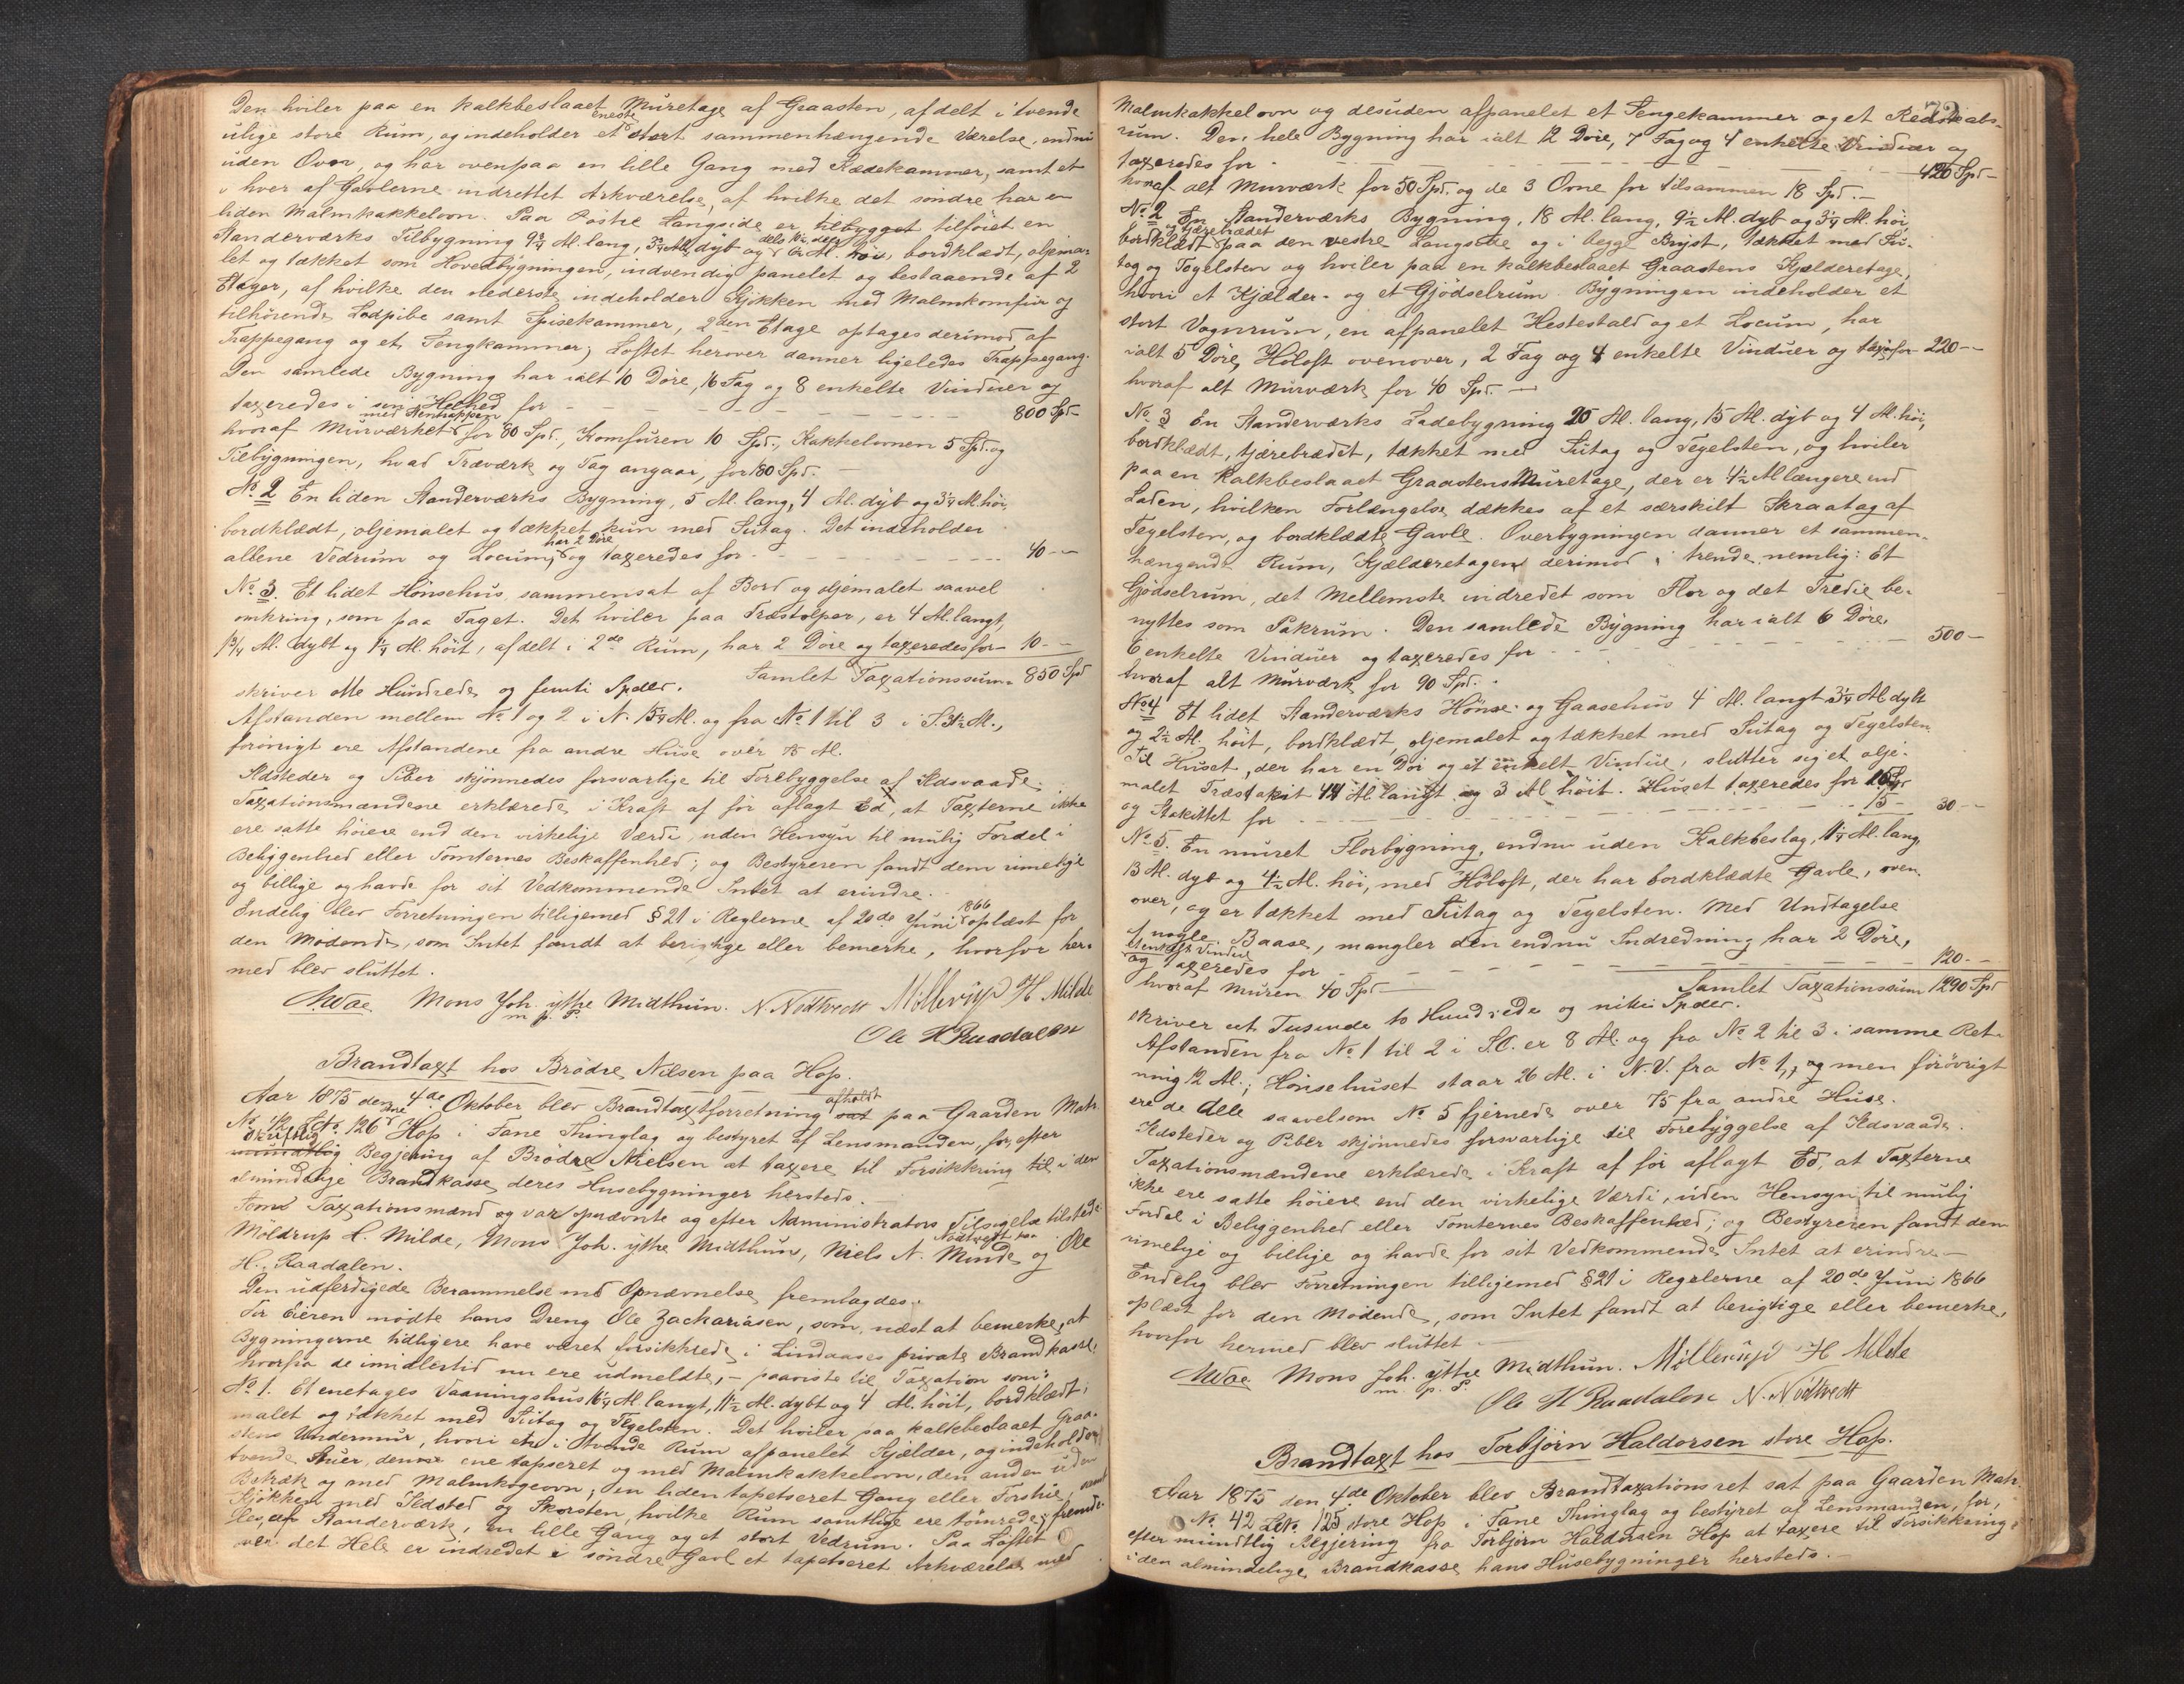 Den hviler paa en kalkbeslaaet Muretage af Graasten, afdelt i tvende
ulige store Rum, og indeholder et eneste stort sammenhængende Værelse, endnu
uden Ovn, og har ovenpaa en lille Gang med Klædekammer, samt et
i hver af Gavlerne indrettet Arkværelse, af hvilke det søndre har en
liden Malmkakkelovn. Paa Østre Langside er tilbygget tilföiet en
Standerværks Tilbygning 9 3/4 Al. lang, 3 3/4 Al. dyb og Al. høi, bordklædt, oljema-
let og tækket som Hovedbygningen, indvendig panelet og bestaaende af 2
Etager, af hvilke den nederste indeholder Kjøkken med Malmkomfür og
tilhörende Lodpibe samt Spisekammer, 2den Etage optages derimod af
Trappegang og et Sengkammer; Loftet herover danner ligeledes Trappegang.
Den samlede Bygning har ialt 10 Döre, 16 Fag og 8 enkelte Vinduer og
taxeredes i sin Helhed for - - - 800 Spd
hvoraf Mürværket med Stentrappen for 80 Spd., Komfuren 10 Spd., Kakkelovnen 5 Spd. og
Tilbygningen, hvad Træværk og Tag angaar, for 180 Spd. —
No. 2 En liden Standerværks Bygning, 5 Al. lang, 4 Al. dyb og 3 1/4 Al. høi,
bordklædt, oljemalet og tækket kun med Sutag. Det indeholder
allene Vedrum og Locum, har 2 Döre og taxeredes for - - - 40 - -
No. 3. Et lidet Hönsehus, sammensat af Bord og oljemalet saavel
omkring, som paa Taget. Det hviler paa Træstolper, er 4 Al. langt,
1 3/4 Al. dybt og 1 3/4 Al. höit, afdelt i 2de Rum, har 2 Döre og taxeredes for - 10 - -
Samlet Taxationssum 850 Spd
skriver otte Hundrede og femti Spdlr.
Afstanden mellem No. 1 og 2 i N. 15 1/4 Al. og fra No. 1 til 3 i S. 31 1/2 Al.,
forövrigt ere Afstandene fra andre Huse over 75 Al.
Ildsteder og Piber skjönnedes forsvarlige til Forebyggelse af Ildsvaade.
Taxationsmændene erklærede i Kraft af för aflagt Ed, at Taxterne ikke
ere satte höiere end den virkelige Værdi, uden Hensyn til mulig Fordel i
Beliggenhed eller Tomternes Beskaffenhed; og Bestyreren fandt dem rimelige
og billige og havde for sit Vedkommende Intet at erindre.
Endelig blev Forretningen tilligemed § 21 i Reglerne af 20de Juni 1866 oplæst for
den Mødende, som Intet fandt at berigtige eller bemerke, hvorfor her-
med blev sluttet.
Mons Joh. ytre Midthun. N. Nödtvedt Möllerup H. Milde
m. p. P.
Ole H. Raadalen
Brandtaxt hos Brödre Nilsen paa Hop.
Aar 1875 den 4de Oktober blev Brandtaxtforretning afholdt sat paa Gaarden Matr.
No. 42 Lit. 126 Hop i Fane Thinglag og bestyret af Lensmanden, for efter
skriftlig mundtlig Begjering af Brödre Nielsen at taxere til Forsikkring til i den
almindelige Brandkasse, deres Husebygninger hersteds. —
Som Taxationsmænd og var opnævnte og efter Administrators Tilsigelse tilstede:
Möldrup H. Milde, Mons Joh. ytre Midthun, Niels N. Nödtvedt paa Minde og Ole
H. Raadalen.
Den udferdigede Berammelse med Opnævnelse fremlagdes.
For Eieren mödte hans Dreng Ole Zachariasen, som, næst at bemerke, at
Bygningerne tidligere have været forsikkrede i Lindaases private Brandkasse,
hvorfra de imidlertid nu ere udmeldte, — paaviste til Taxation som:
No. 1. Et enetages Vaaningshus 16 1/4 Al. langt, 11 1/2 Al. dybt og 4 Al. höit, bordklædt,
malet og tækket med Sutag og Tegelsten. Det hviler paa kalkbeslaaet Graa-
stens Undermur, hvori et i tvende Rum afpanelet Kjælder, og indeholder
tvende Stuer, den ene tapseret og med Malmkakkelovn, den anden uden
Betræk og med Malmkogeovn; en liden tapetseret Gang eller Forstue, samt
Kjökken med Ildsted og Skorsten, hvilke Rum samtlige ere tömrede; fremde-
les, af Standerværk, en lille Gang og et stort Vedrum. Paa Loftet
over det Hele er indredet i söndre Gavl et tapetseret Arkværelse med
72
Malmkakkelovn og desuden afpanelet et Sengekammer og et Redskabs-
rum. Den hele Bygning har ialt 12 Döre, 7 Fag og 4 enkelte Vinduer og
taxeredes for - - - 420 Spd -
hvoraf alt Murværk for 50 Spd. og de 3 Ovne for tilsammen 18 Spd. —
No. 2 En Standerværks Bygning, 18 Al. lang, 9 1/2 Al. dyb og 3 1/4 Al. høi,
bordklædt og tjærebrædet paa den vestre Langside og i begge Bryst, tækket med Su-
tag og Tegelsten og hviler paa en kalkbeslaaet Graastens Kjælderetage,
hvori et Kjælder- og et Gjödselrum. Bygningen indeholder et
stort Vognrum, en afpanelet Hestestald og et Locum, har
ialt 5 Döre, Höloft ovenover, 2 Fag og 4 enkelte Vinduer og tax. for 220 - -
hvoraf alt Murværk for 40 Spd. —
No. 3 En Standerværks Ladebygning 20 Al. lang, 15 Al. dyb og 4 Al. høi,
bordklædt, tjærebrædet, tækket med Sutag og Tegelsten, og hviler
paa en kalkbeslaaet Graastens Muretage, der er 4 1/2 Al længere end
Laden, hvilken Forlængelse dækkes af et særskilt Skraatag af
Tegelsten, og bordklædte Gavle. Overbygningen danner et sammen-
hængende Rum, Kjælderetagen derimod i trende, nemlig: Et
Gjödselrum, det Mellemste indredet som Flor og det Tredie be-
nyttes som Pakrum. Den samlede Bygning har ialt 6 Döre,
6 enkelte Vinduer og taxeredes for - - - 500 -
hvoraf alt Murværk for 90 Spd. .
No. 4 Et lidet Standerværks Hönse- og Gaasehus 4 Al. langt 3 1/4 Al. dybt
og 2 1/2 Al. höit, bordklædt, oljemalet og tækket med Sutag og Tegelsten.
Til Huset, der har en Dör og et enkelt Vindue, slutter sig et olje-
malet Træstakit 44 Al. langt og 3 Al höit. Huset taxeredes for 15 Spd
og Stakittet for - - - 15 - 30 - -
No. 5. En muret Florbygning, endnu uden Kalkbeslag, 11 1/4 Al. lang,
13 Al. dyb og 4 1/2 Al. høi, med Höloft, der har bordklædte Gavle, oven-
over, og er tækket med Sutag og Tegelsten. Med Undtagelse
af nogle Baase, mangler den endnu Indredning har 2 Döre,
1 enkelt Vindue og taxeredes for - - - 120 - -
hvoraf Muren 40 Spd — Samlet Taxationssum 1290 Spd
skriver et Tusinde to Hundrede og nitti Spdlr.
Afstanden fra No. 1 til 2 i S.O. er 8 Al. og fra No. 2 til 3 i samme Ret-
ning 12 Al.; Hönsehuset staar 26 Al. i N.V. fra No. 1, og men forövrigt
ere de Alle saavelsom No. 5 fjernede over 75 fra andre Huse.
Ildsteder og Piber skjönnedes forsvarlige til Forebyggelse af Ildsvaade.
Taxationsmændene erklærede i Kraft af för aflagt Ed, at Taxterne
ikke ere satte höiere end den virkelige Værdi, uden Hensyn til mulig
Fordel i Beliggenhed eller Tomternes Beskaffenhed; og Bestyreren fandt dem
rimelige og billige og havde for sit Vedkommende Intet at erindre —
Endelig blev Forretningen tilligemed § 21 i Reglerne af 20de Juni 1866
oplæst for den Mødende, som Intet fandt at berigtige eller bemerke,
hvorfor hermed blev sluttet —
Mons Joh. ytre Midthun. Möllerup H Milde
m. p. P.
Ole H Raadalen N. Nödtvedt
Brandtaxt hos Torbjörn Haldorsen store Hop.
Aar 1875 den 4de Oktober blev Brandtaxationsret sat paa Gaarden Matr.
No. 42 Lit. 125 store Hop i Fane Thinglag og bestyret af Lensmanden, for,
efter mundtlig Begjering fra Torbjörn Haldorsen Hop at taxere til Forsikkring
i den almindelige Brandkasse, hans Husebygninger hersteds. —